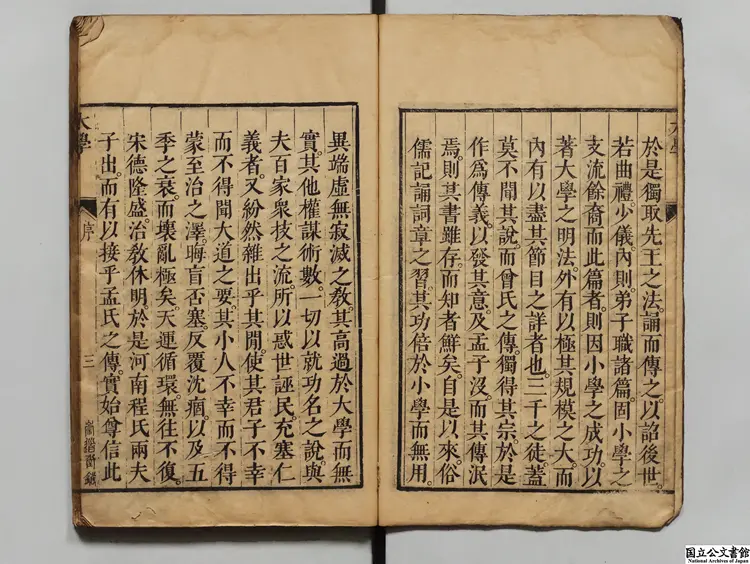 於是獨取先王之法。誦而傳之。以詔後世。
若曲禮。少儀。內則。弟子職諸篇。固小學之
支流餘裔而此篇者。則因小學之成功。以
著大學之明法。外有以極其規模之大。而
內有以盡其節目之詳者也。三千之徒蓋
莫不聞其說而曾氏之傳。獨得其宗於是
作爲傳義。以發其意。及孟子沒。而其傳泯
焉。則其書雖存。而知者鮮矣。自是以來。俗
儒記誦詞章之習。其功倍於小學而無用。
異端虛無寂滅之敎。其高過於大學而無
實。其他權謀術數。一切以就功名之說。與
夫百家衆技之流。所以惑世誣民。充塞仁
義者。又紛然雜出乎其閒。使其君子不幸
而不得聞大道之要。其小人不幸而不得
蒙至治之澤。晦盲否塞。反覆沈痼。以及五
季之衰。而壞亂極矣。天運循環。無往不復。
宋德隆盛。治敎休明。於是河南程氏兩夫
子出。而有以接乎孟氏之傳。實始尊信此
大學
序
三
国立公文書館
National Archives of Japan